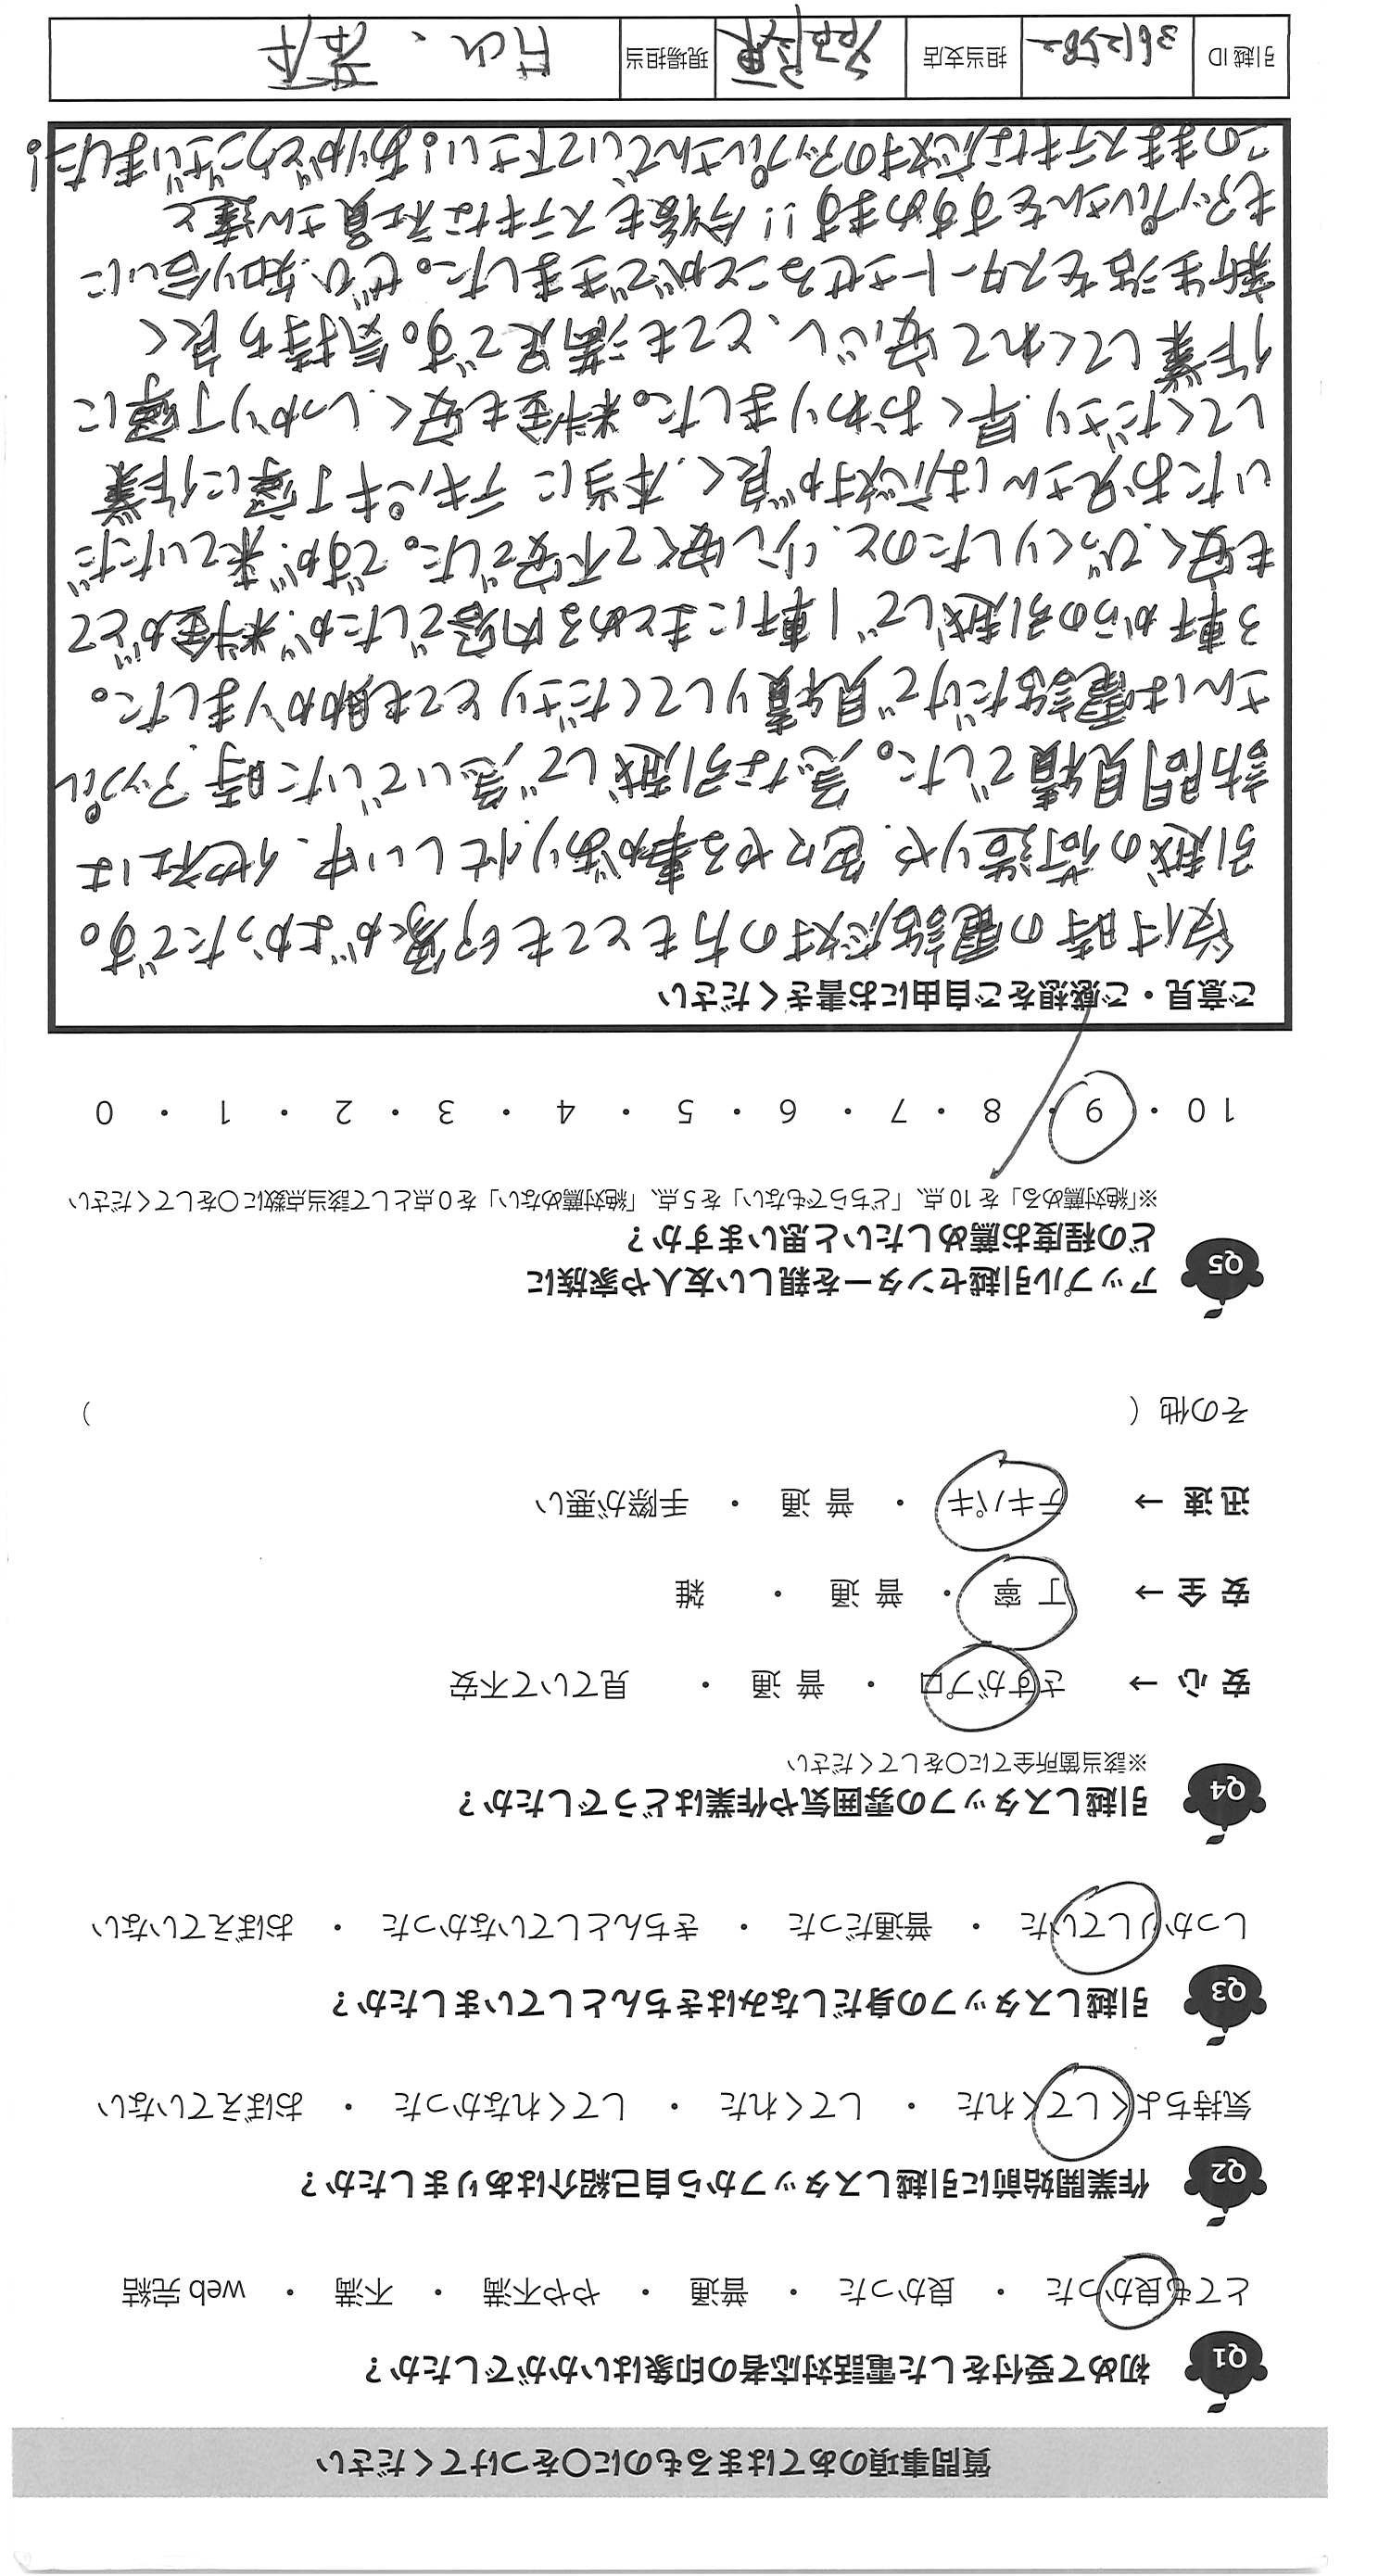 質問事項のあてはまるものに〇をつけてください
Q1 初めて受付をした電話対応者の印象はいかがでしたか？
とても良かった ・ 良かった ・ 普通 ・ やや不満 ・ 不満 ・ web 完結
Q2 作業開始前に引越しスタッフから自己紹介はありましたか？
気持ちよくしてくれた ・ してくれた ・ してくれなかった ・ おぼえていない
Q3 引越しスタッフの身だしなみはきちんとしていましたか？
しっかりしていた ・ 普通だった ・ きちんとしていなかった ・ おぼえていない
Q4 引越しスタッフの雰囲気や作業はどうでしたか？
※該当箇所全てに〇をしてください
安 心 → さすがプロ ・ 普 通 ・ 見ていて不安
安 全 → 丁 寧 ・ 普 通 ・ 雑
迅 速 → テキパキ ・ 普 通 ・ 手際が悪い
その他（ ）
Q5 アップル引越センターを親しい友人や家族に
どの程度お薦めしたいと思いますか？
※「絶対薦める」を 10 点、「どちらでもない」を 5 点、「絶対薦めない」を 0 点として該当点数に〇をしてください
10 ・ 9 ・ 8 ・ 7 ・ 6 ・ 5 ・ 4 ・ 3 ・ 2 ・ 1 ・ 0
ご意見・ご感想をご自由にお書きください
受付時の電話応対の方もとても印象がよかったです。
引越の荷造りや、色々やる事があり忙しい中、他社は
訪問見積でした。急な引越しで急いでいた時、アップル
さんは電話だけで見積りしてくださりとても助かりました。
3軒からの引越しで1軒にまとめる内容でしたが、料金がとて
も安く、びっくりしたのと、少し安くて不安でした。ですが、来ていただ
いたお兄さんは応対が良く、本当にテキパキ丁寧に作業
してくださり、早くおわりました。料金も安く、しっかり丁寧に
作業してくれて安心し、とても満足です。気持ち良く
新生活をスタートさせることができました。ぜひ、知り合いに
もアップルさんをすすめます!!今後もステキな社員さん達と
このままステキな応対のアップルさんでいて下さい!ありがとうございました!
引越 ID 361258-2 担当支店 現場担当